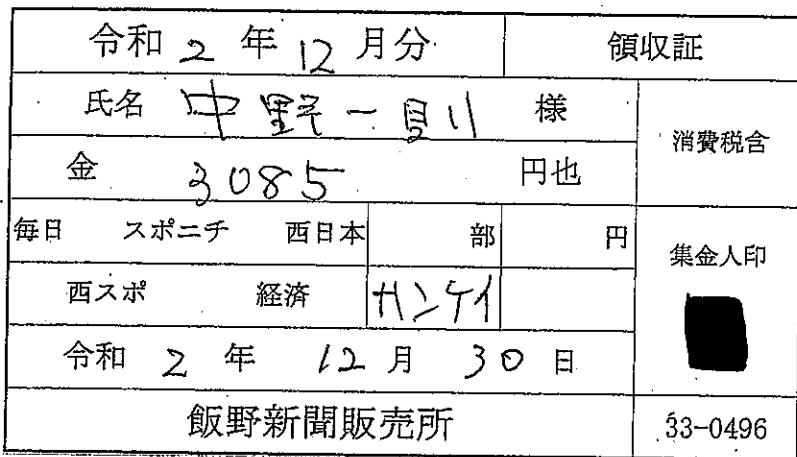 令和 2 年 12 月分 領収証
氏名 中野一則 様
消費税含
金 3085 円也
毎日 スポニチ 西日本 部 円
集金人印
西スポ 経済 サンケイ
令和 2 年 12 月 30 日
飯野新聞販売所 33-0496